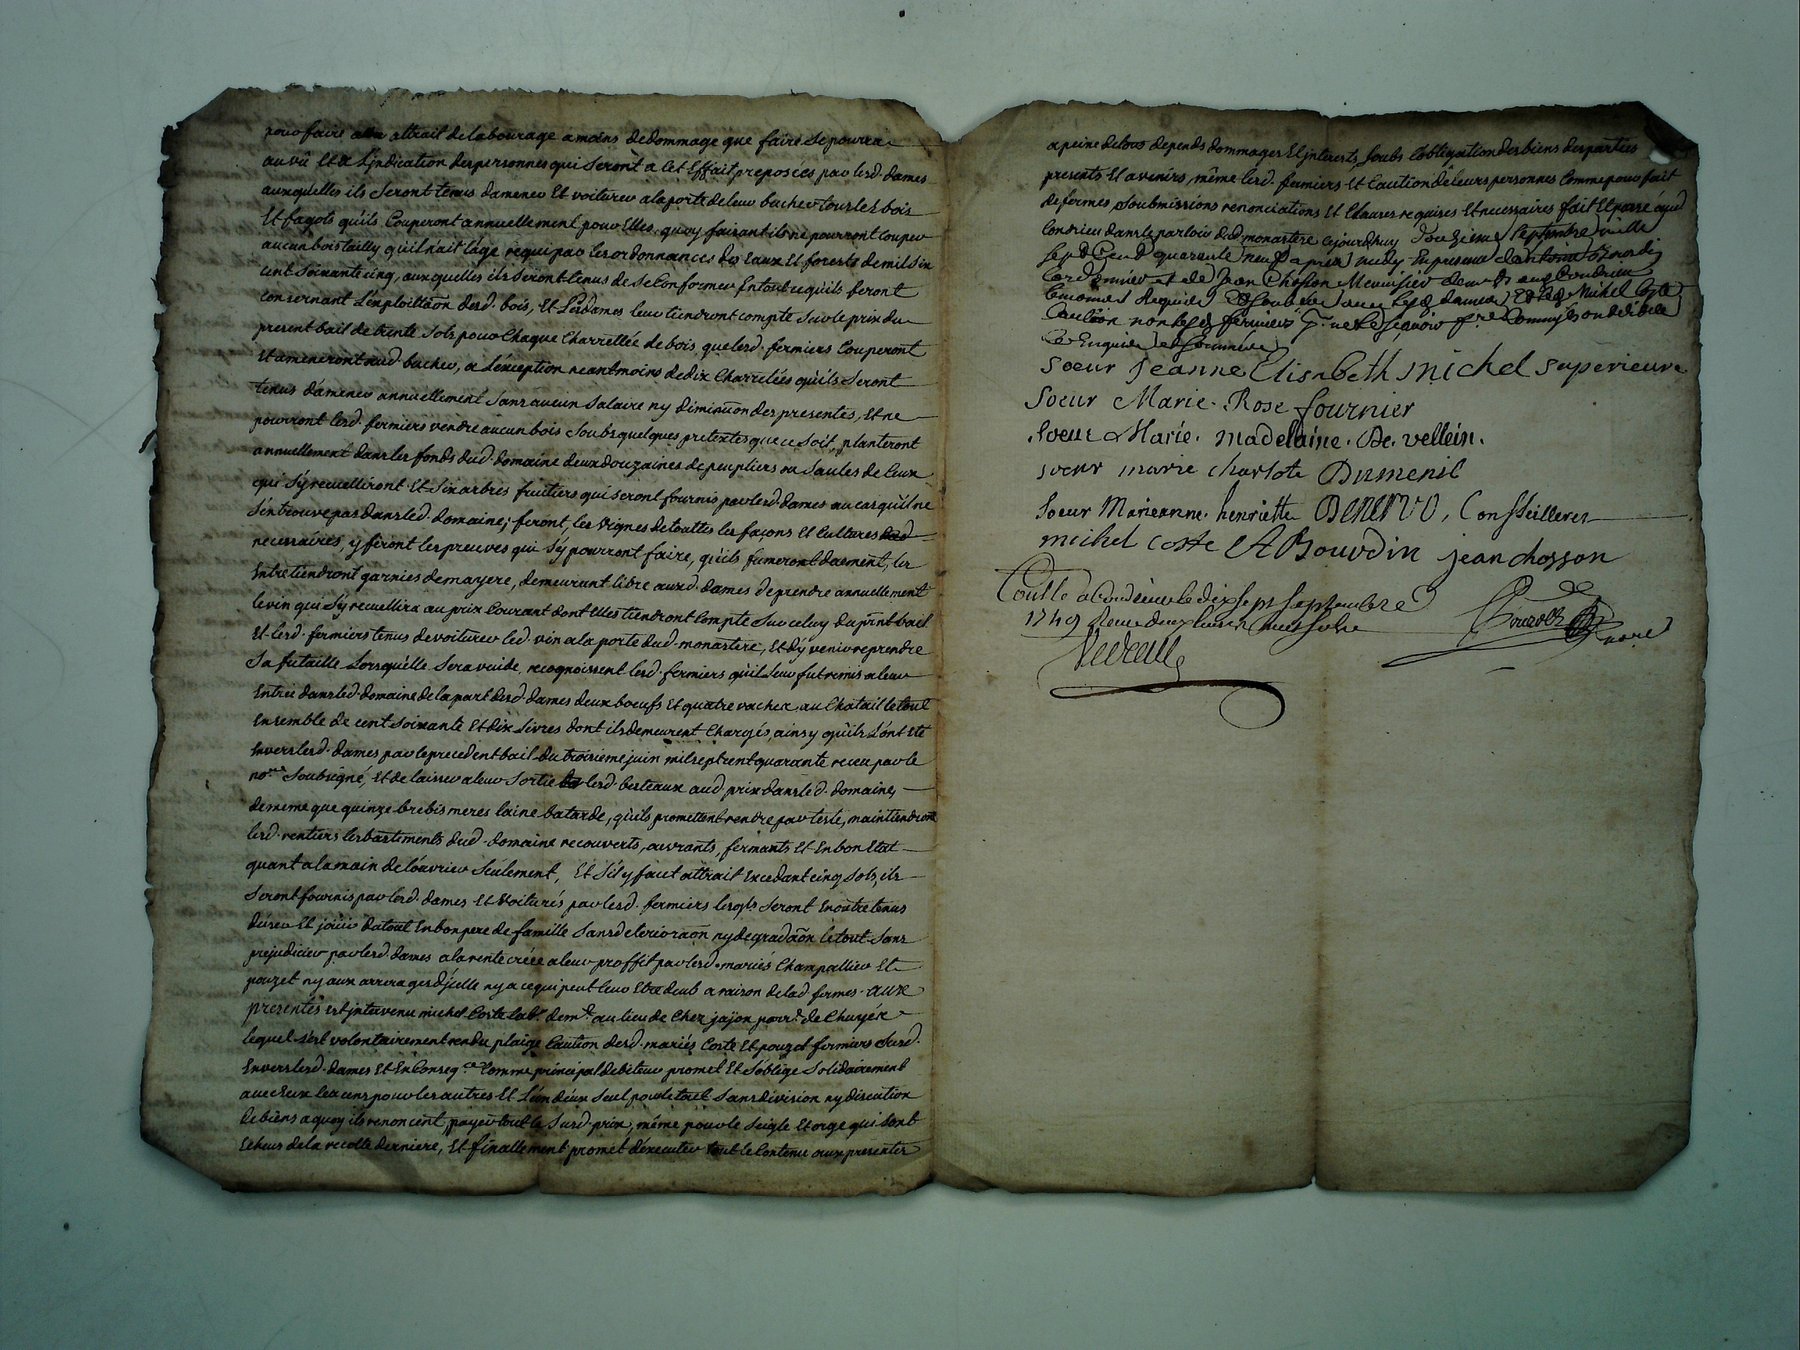 pour faire attrait de labourage a moins de dommage que faire se pourra
au vû Et a L'indication des personnes qui Seront a cet Effait preposées par lesd. dames
auxquelles ils Seront tenus d'amener Et voiturer a la porte de leur bucher tous les bois
Et fagots qu'ils Couperont annuellement pour Elles. quoy faisant ils ne pourront couper
aucun bois tailly qu'il n'ait l'age requi par les ordonnances des Eaux Et forests de mil Six
cent Soixante cinq, auxquelles ils Seront tenus de se Conformer En tout ce qu'ils feront
concernant L'exploittaôn desd. bois, Et Lesd dames leur tiendront compte Sur le prix du
present bail de trente Sols pour Chaque Charrettée de bois que lesd. fermiers Couperont
Et ameneront aud. bucher, a L'exception neantmoins de dix Charretées qu'ils Seront
tenus d'amener annuellement Sans aucun Salaire ny diminuôn des presentes, Et ne
pourront lesd. fermiers vendre aucun bois Soubs quelques pretextes que ce Soit, planteront
annuellement dans les fonds dud. domaine deux douzaines de peupliers ou Saules de Ceux
qui S'y recueilliront Et Six arbres fruitiers qui seront fournis par lesd. dames au cas qu'il ne
S'en trouve pas dans led. domaine; feront, les vignes de touttes les façons Et Cultures
necessaires, y feront les preuves qui S'y pourront faire, qu'ils fumeront duement, les
Entretiendront garnies de mayere, demeurant libre auxd. dames de prendre annuellement
le vin qui S'y recueillira au prix Courant dont Elles tiendront Compte Sur celuy du pñt bail
Et lesd. fermiers tenus de voiturer led. vin a la porte dud. monastere, Et d'y venir reprendre
Sa futaille Lorsqu'elle Sera vuide, recognoissent lesd. fermiers qu'il Leur fut remis a leur
Entrée dans led. domaine de la part desd. dames deux boeufs Et quatre vaches au Chatail le tout
Ensemble de cent Soixante Et dix Livres dont ils demeurent Chargés, ainsy qu'ils L'ont Eté
Envers lesd. dames par le precedent bail du troisieme juin mil sept cent quarante receu par le
noͬᵉ Soubsigné, Et de laisser a leur Sortie lesd. bestiaux aud prix dans led. domaine,
de meme que quinze brebis meres laine batarde, qu'ils promettent rendre par teste, maintiendront
lesd. rentiers les bastiments dud. domaine recouverts, ouvrants, fermants Et En bon Etat
quant a la main de l'ouvrier Seulement, Et S'il y faut attrait Excedant cinq Sols, ils
Seront fournis par lesd. dames Et Voiturés par lesd. fermiers lesqls Seront En outre tenus
d'user Et jouir du tout En bon pere de famille Sans deterioraôn ny degradaôn le tout Sans
prejudicier par lesd. dames a la rente créée a leur proffit par lesd. mariés Champallier Et
pouzet ny aux arrerages d'jcelle ny a ce qui peut leur Etre deub a raison de lad. ferme. aux
presentes est jntervenu michel Coste labͬ. demͭ. au lieu de Chez jajon parr. de Chuyer
lequel s'est volontairement rendu plaige Caution desd. mariés Coste Et pouzet fermiers Susd.
Envers lesd. dames Et En Conseq.ce Comme principal debiteur promet Et S'oblige Solidairement
avec Eux les uns pour les autres Et L'un d'eux Seul pour le tout Sans division ny discution
de biens a quoy ils renoncent, payer tout le Susd. prix, même pour le Seigle Et orge qui sont
Echeus de la recolte derniere, Et finallement promet d'executer tout le Contenu aux presentes
a peine de tous depends dommages Et jnterests, Soubs L'obligation des biens des parties
presents Et avenirs, même lesd. fermiers Et Caution de leurs personnes Comme pour fait
de fermes, Soubmissions renonciations Et Clauses requises Et necessaires fait Et passé aud
Condrieu dans le parloir dud. monastere cejourdhuy douzieme Septembre mille
Sept Cend quarente neuf apres midy En presence d'antoine Bourdin
Cordonnier et de Jean Chosson Menuisier demͭˢ aud Condrieu
temoins Requis Et Soubsig. avec Lesd dames Et led Michel Coste
Caution non lesd fermiers
de Enquis et sommes
Soeur Jeanne Elisabeth michel supérieure
Soeur Marie. Rose fournier
Soeur Marie. madelaine. De. vellein.
soeur marie charlote Dumenil
Soeur Marieanne. henriette Denervo, Conssellieres
michel coste A Bourdin jean chosson
Conlle a Condrieu le dix Sept Septembre
1749 Receu deux livres neuf sols